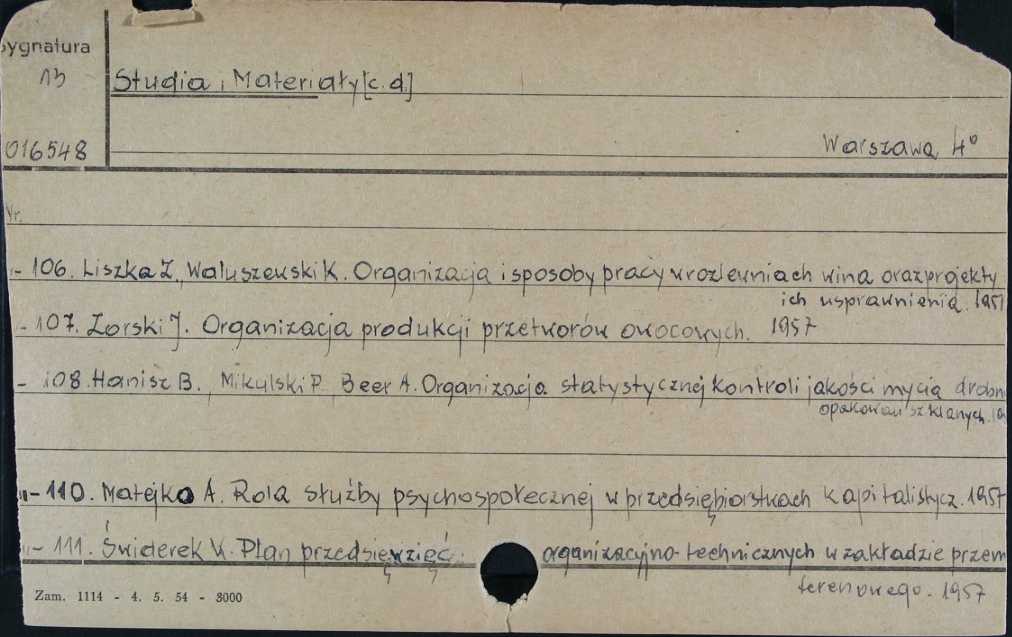 Sygnatura
13
Studia i Materiały [c. d.]
016548
Warszawa 4°
Nr.
- 106. Liszka Z., Waluszewski K. Organizacja i sposoby pracy w rozlewniach wina oraz projekty
ich usprawnienia. 1957
- 107. Zorski J. Organizacja produkcji przetworów owocowych. 1957
- 108. Hanisz B., Mikulski P., Beer A. Organizacja statystycznej kontroli jakości mycia drobn
opakowań szklanych.
- 110. Matejko A. Rola służby psychospołecznej w przedsiębiorstwach kapitalistycz. 1957
- 111. Świderek W. Plan przedsięwzięć organizacyjno-technicznych w zakładzie przem
terenowego. 1957
Zam. 1114 - 4. 5. 54 - 8000